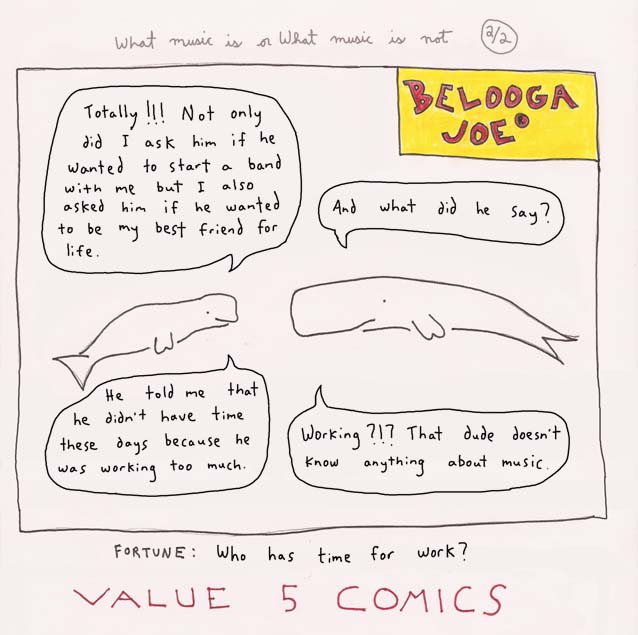 What music is or What music is not 2/2
BELOOGA
JOE®
Totally!!! Not only
did I ask him if he
wanted to start a band
with me but I also
asked him if he wanted
to be my best friend for
life.
And what did he say?
He told me that
he didn't have time
these days because he
was working too much.
Working?!? That dude doesn't
know anything about music.
FORTUNE: Who has time for work?
VALUE 5 COMICS